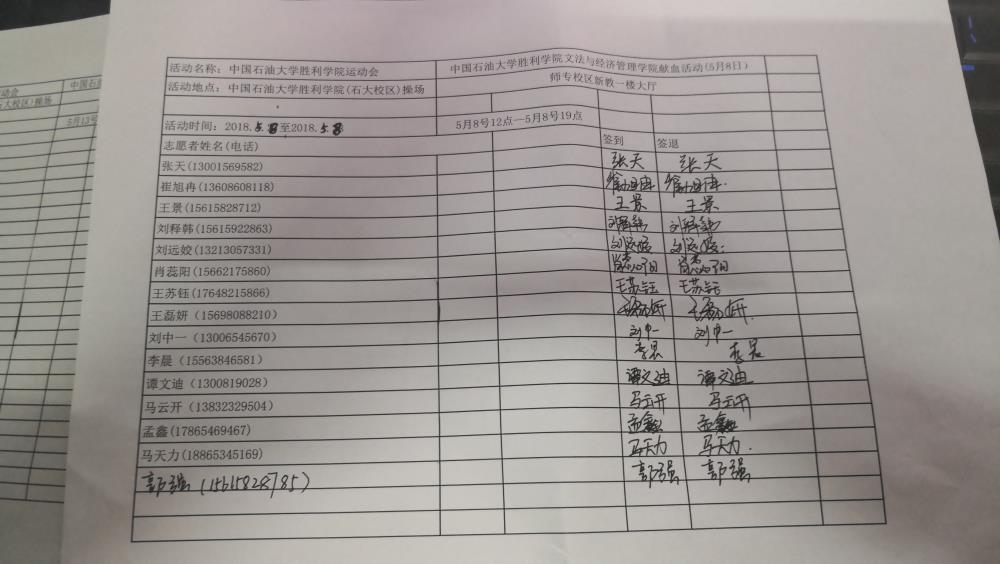 活动名称：中国石油大学胜利学院运动会 中国石油大学胜利学院文法与经济管理学院献血活动(5月8日)
活动地点：中国石油大学胜利学院(石大校区)操场 师专校区新教一楼大厅
活动时间：2018.5.8至2018.5.8 5月8号12点—5月8号19点
志愿者姓名(电话) 签到 签退
张天(13001569582) 张天 张天
崔旭冉(13608608118) 崔旭冉 崔旭冉
王景(15615828712) 王景 王景
刘释韩(15615922863) 刘释韩 刘释韩
刘远姣(13213057331) 刘远姣 刘远姣
肖蕊阳(15662175860) 肖蕊阳 肖蕊阳
王苏钰(17648215866) 王苏钰 王苏钰
王磊妍(15698088210) 王磊妍 王磊妍
刘中一(13006545670) 刘中一 刘中一
李晨(15563846581) 李晨 李晨
谭文迪(1300819028) 谭文迪 谭文迪
马云开(13832329504) 马云开 马云开
孟鑫(17865469467) 孟鑫 孟鑫
马天力(18865345169) 马天力 马天力
郭强(15615828785) 郭强 郭强
动会
石大校区)操场
中国石油
5月13号